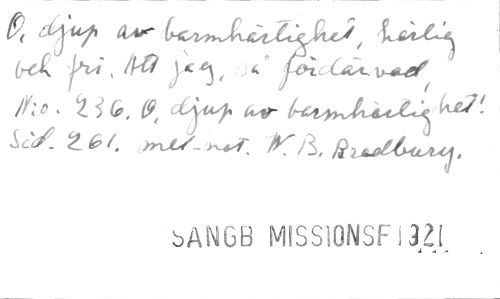 O, djup av barmhärtighet, härlig
och fri. Att jag, så fördärvad,
N:o. 236. O, djup av barmhärtighet!
Sid. 261. mel-not. W. B. Bradbury.
SANGB MISSIONSF 1921